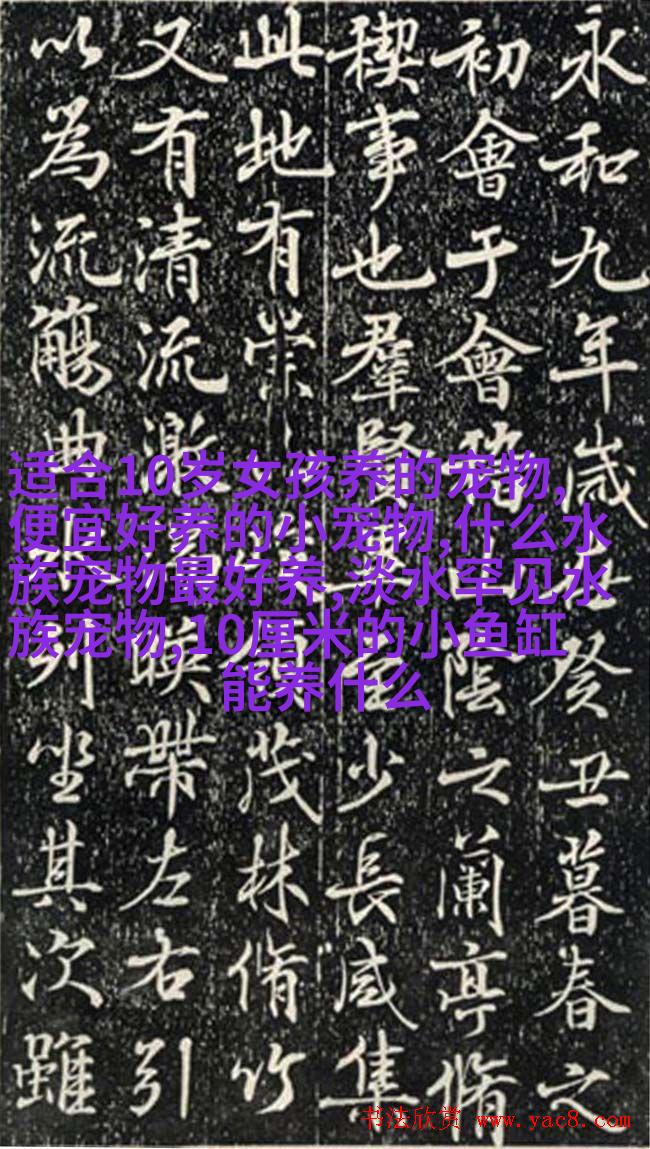 永和九年歲在癸丑暮春之
初會于會稽陰之蘭亭脩
稧事也羣賢至少長咸集
此地有崇茂林脩竹
又有清流激暎帶左右引
以為流觴曲列坐其次雖
适合10岁女孩养的宠物,
便宜好养的小宠物,什么水
族宠物最好养,淡水罕见水
族宠物,10厘米的小鱼缸
能养什么
书法欣赏 www.yac8.com